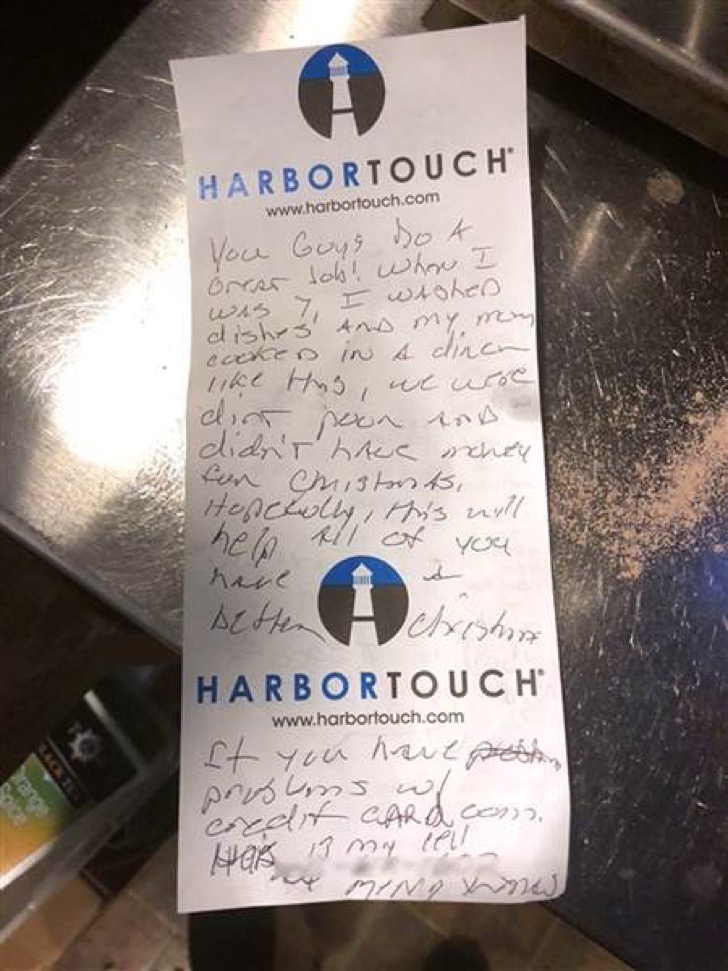 HARBORTOUCH®
www.harbortouch.com
You Guys Do A
Great Job! When I
was 7, I washed
dishes And my mom
cooked in A diner
like this, we were
dirt poor And
didn't have money
for Christmas.
Hopefully, this will
help All of you
have a
better Christmas
HARBORTOUCH®
www.harbortouch.com
If you have
problems w/
credit CARD com.
is my cell
Merry Xmas
orange
spice
BLACK TEA